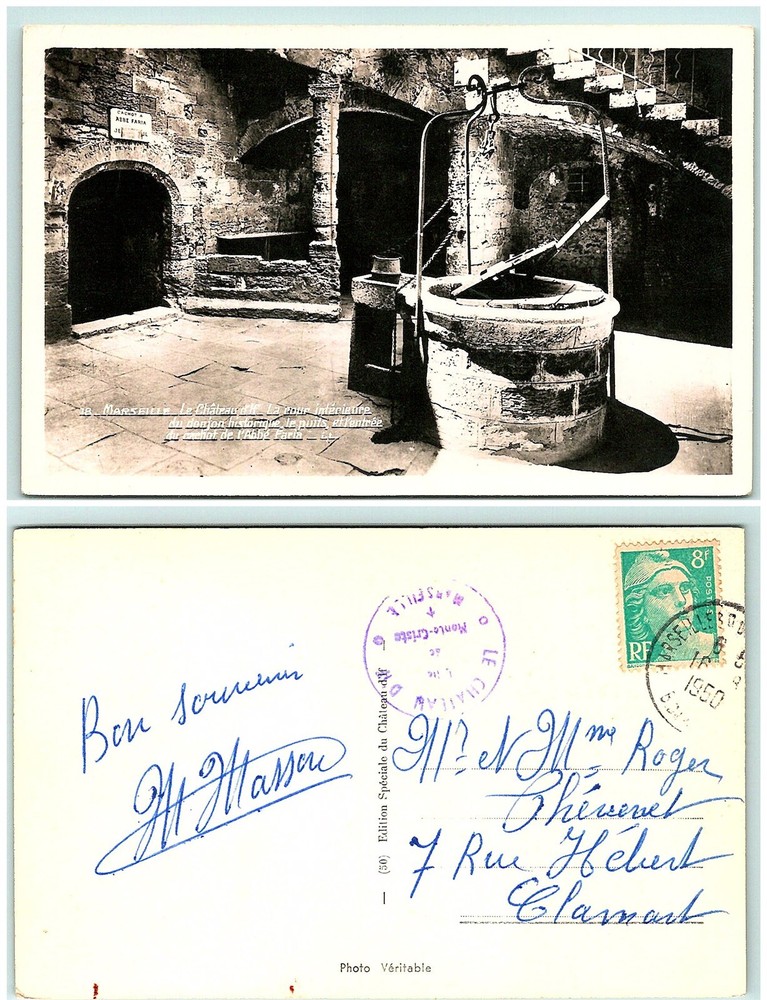 CACHOT DE
ABBÉ FARIA
18 _ MARSEILLE _ Le Château d'If _ La cour intérieure
du donjon historique, le puits et l'entrée
du cachot de l'Abbé Faria _ LL
8F
POSTES
RF
MARSEILLE
16
1950
MARSEILLE
Monte-Cristo
de
LE CHATEAU D'IF
Bon souvenir
M Masson
(50) Edition Spéciale du Château d'If
Mr et Mme Roger
Thévenet
7 Rue Hébert
Clamart
Photo Véritable